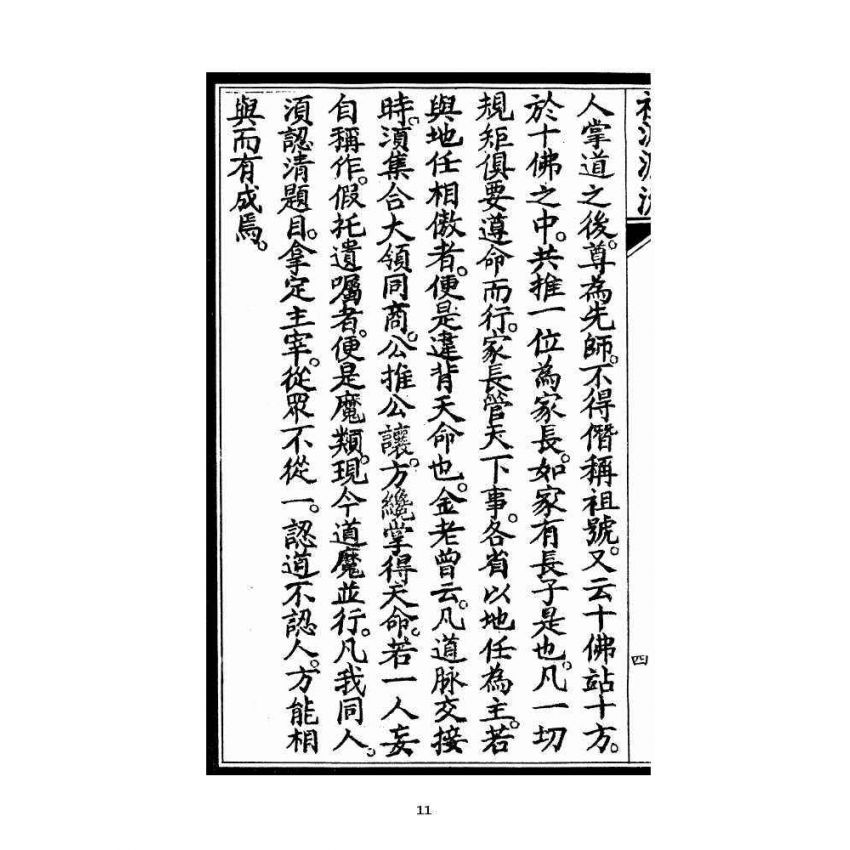 人掌道之後。尊為先師。不得僭稱祖號。又云十佛站十方。
於十佛之中。共推一位為家長。如家有長子是也。凡一切
規矩俱要遵命而行。家長管天下事。各省以地任為主。若
與地任相傲者。便是違背天命也。金老曾云。凡道脉交接
時。須集合大領同商。公推公讓。方纔掌得天命。若一人妄
自稱作。假托遺囑者。便是魔類。現今道魔並行。凡我同人。
須認清題目。拿定主宰。從眾不從一。認道不認人。方能相
與而有成焉。
四
11